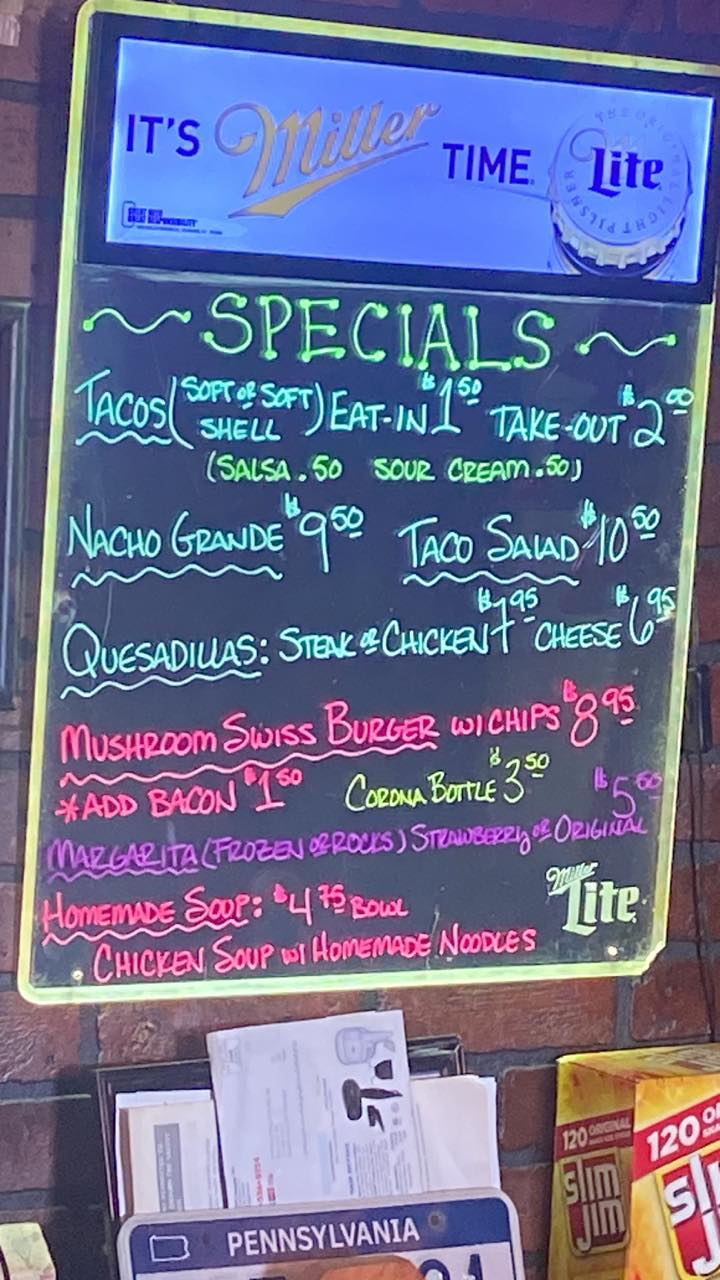 IT'S Miller TIME.
THE ORIGINAL LIGHT PILSNER
Lite
GREAT BEER
GREAT RESPONSIBILITY
~ SPECIALS ~
TACOS (SOFT OR SOFT SHELL) EAT-IN $1.50 TAKE-OUT $2.00
(SALSA .50 SOUR CREAM .50)
NACHO GRANDE $9.50 TACO SALAD $10.50
QUESADILLAS: STEAK OR CHICKEN $7.95 CHEESE $6.95
MUSHROOM SWISS BURGER W/ CHIPS $8.95
*ADD BACON $1.50 CORONA BOTTLE $3.50 $5.50
MARGARITA (FROZEN OR ROCKS) STRAWBERRY OR ORIGINAL
HOMEMADE SOUP: $4.75 BOWL
CHICKEN SOUP W/ HOMEMADE NOODLES
Miller
Lite
PENNSYLVANIA
120 ORIGINAL
Slim
Jim
120 O